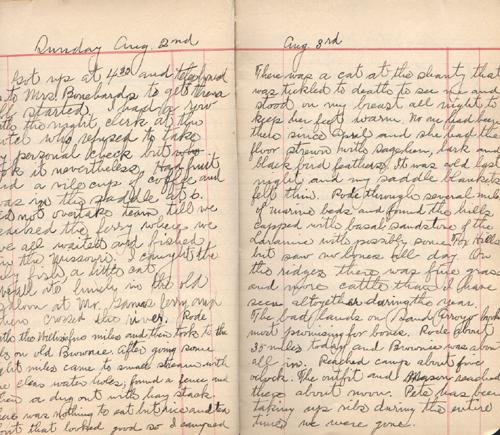 Sunday Aug. 2nd
Got up at 4:30 and telephoned
to Mrs Bonebards to get them
started. I had a row
with the night clerk at the
who refused to take
my personal check but
took it nevertheless. Had fruit
and a vile cup of coffee and
was in the saddle at 6.
Did not overtake team till we
reached the ferry where we
we all waited and fished
in the Missouri. I caught the
only fish a little cat
We all ate lunch in the old
saloon at Mr. ferry and
then crossed the river. Rode
with the miles and then took to the
hills on old Brownie. After going some
eight miles came to small stream with
clear water holes; found a fence and
then a dug out with hay stack
There was nothing to eat but rice and tea
but that looked good so I camped
Aug. 3rd
There was a cat at the shanty that
was tickled to death to see me and
stood on my breast all night to
keep her feet warm. No one had been
there since April and she had the
floor strewn with sagehen, lark and
black bird feathers. It was cold last
night and my saddle blankets
felt thin. Rode through several miles
of marine beds and found the hills
capped with basal sandstone of the
Laramie with possibly some Fox Hills
but saw no bones all day. On
the ridges there was fine grass
and more cattle than I have
seen altogether during the year.
The bad lands on Sand Arroyo look
most promising for bones. Rode about
35 miles today and Brownie was about
all in. Reached camp about five
oclock. The outfit and Mason reached
there about noon. Pete has been
taking up ribs during the entire
time we were gone.